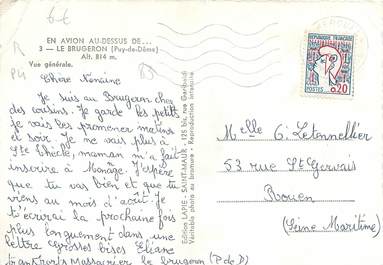 6-E
EN AVION AU-DESSUS DE...
3 — LE BRUGERON (Puy-de-Dôme)
Alt. 814 m.
Vue générale.
Chère Nonaine
Je suis au Brugeron chez
des cousins. Je garde les petits
je vais les promener matins
et soir. Je ne vais plus à
Ste Thècle, maman m'a fait
inscrire à Monage. J'espère
que tu vas bien et que tu
viens au mois d'août. Je
t'écrirai la prochaine fois
plus longuement dans une
lettre Grosses bises Eliane
transports Massacrier le brugeron (P de D)
Edition LAPIE - SAINT-MAUR - 125 bis, rue Garibaldi
Véritable photo au bromure - Reproduction interdite
REPUBLIQUE FRANCAISE
POSTES 0,20
Melle C. Letennellier
53 rue St Gervais
Rouen
(Seine Maritime)